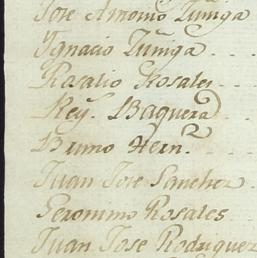 Jose Antonio Zuñiga
Ygnacio Zuñiga
Rosalio Rosales
Rey. Baquera
Bruno Hern.
Juan Jose Sanchez
Geronimo Rosales
Juan Jose Rodriguez